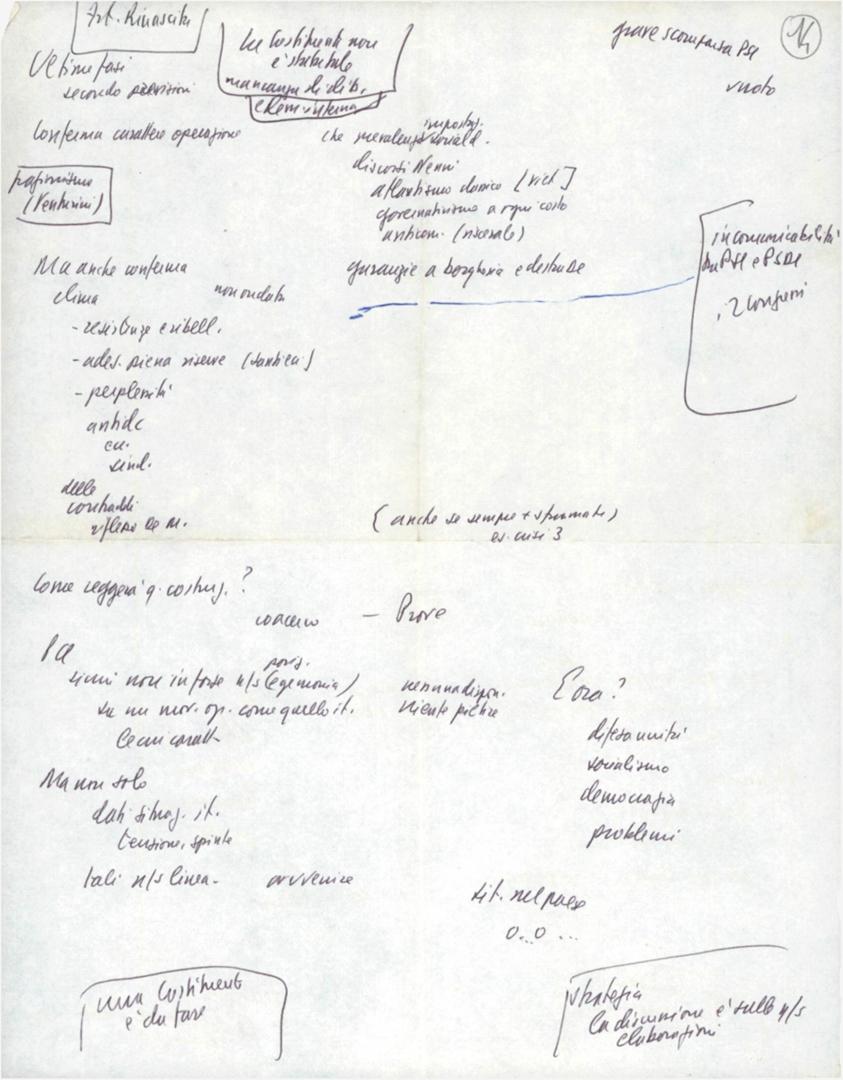 Art. Rinascita
La Costituente non
è stabile
mancanza di dib.
e dem. interna
grave scomparsa PSI
14
vuoto
Ultime fasi
secondo previsioni
Conferma carattere operazione
che prevalenza impostaz. sociald.
discorsi Nenni
atlantismo classico [Viet]
governativismo a ogni costo
anticom. (viscerale)
(Venturini)
garanzie a borghesia e destra DC
incomunicabilità
tra PSI e PSDI
, 2 congressi
Ma anche conferma
clima
non ondata
- resistenze e ribell.
- ades. piena riserve (Santi ca)
- perplessità
antidc
cu.
sind.
delle
contraddi
riflesso De M.
(anche se sempre + sfumate)
es. crisi 3
Come reggerà q. costruz. ?
coacervo
- Prove
PCI
simi non in forse n/s posiz. (egemonia)
su un mov. op. come quello it.
nessuna dispon.
niente pietre
E ora?
difesa unità
socialismo
democrazia
problemi
Ma non solo
dati situaz. it.
tensione, spinte
tali n/s linea - avvenire
sit. nel paese
o..o ...
una Costituente
è da fare
strategia
la discussione è sulle n/s
elaborazioni